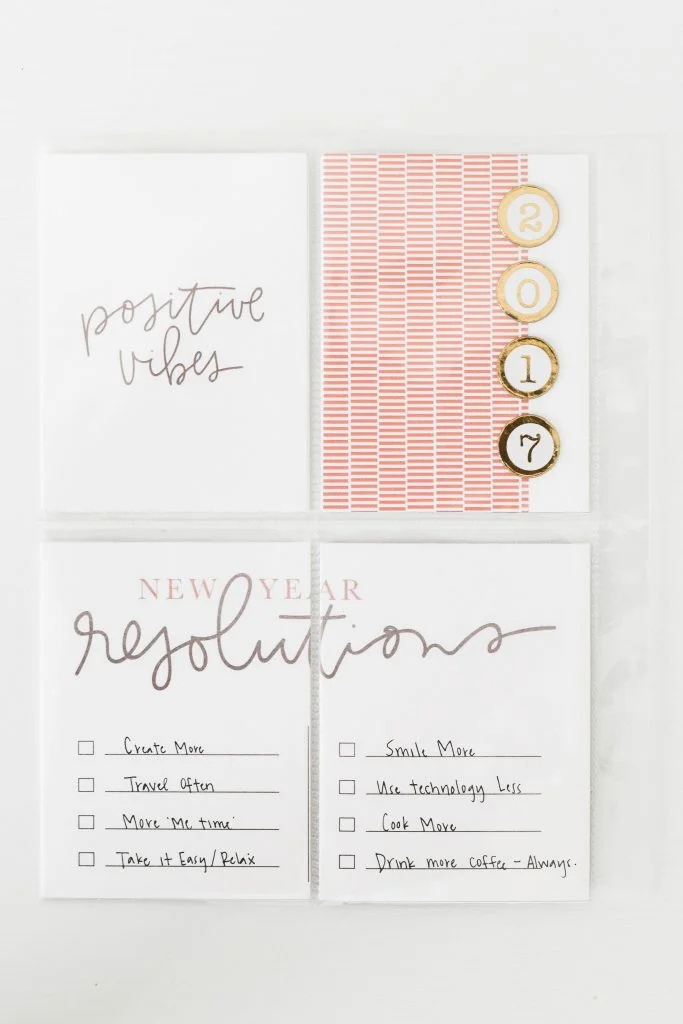 positive
vibes
2
0
1
7
NEW YEAR
resolutions
Create More
Travel Often
More 'Me time'
Take it Easy/Relax
Smile More
Use technology Less
Cook More
Drink more coffee - Always.